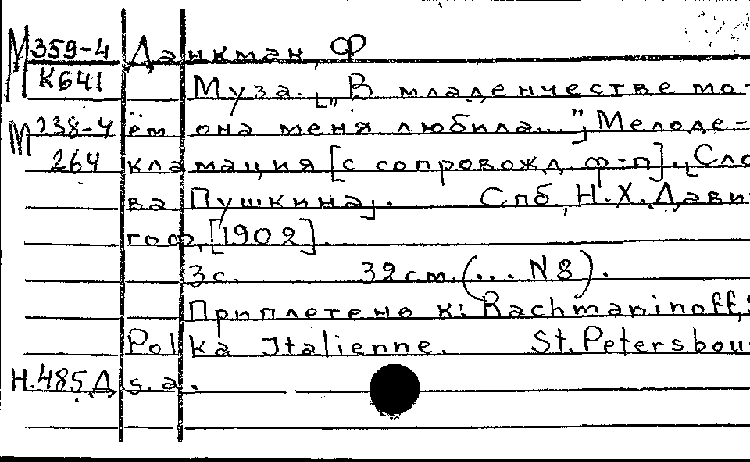 М 359-4 Данкман, Ф
К641 Муза. „В младенчестве мо-
М 238-4 ём она меня любила..."; Мелоде-
264 кламация [с сопровожд. ф-п]. Сло
ва Пушкина. Спб, Н.Х.Дави
гоф, [1902].
3с. 32см. (... N8).
Приплетено к: Rachmaninoff,
Polka Italienne. St.Petersbou
Н.485 Д s.a.